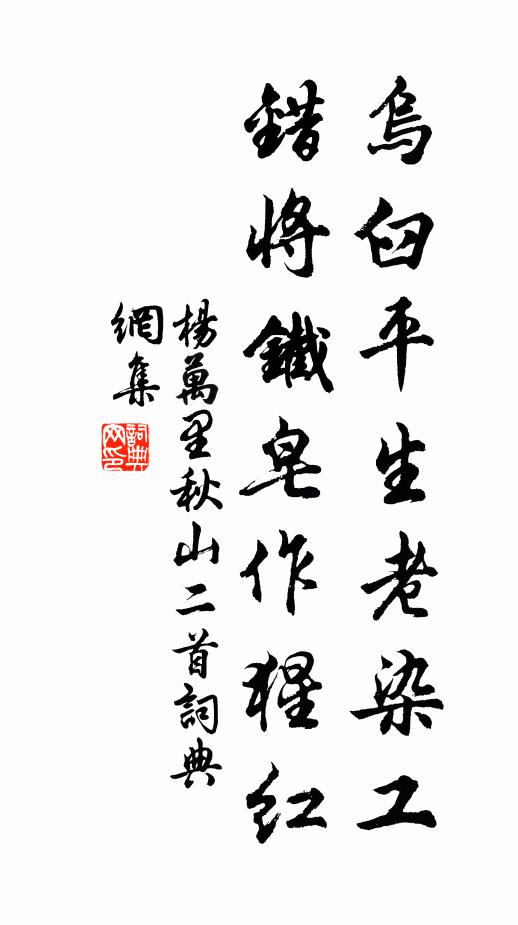 烏臼平生老染工
錯將鐵皂作猩紅
楊萬里秋山二首詞典
網集
詞典
网印